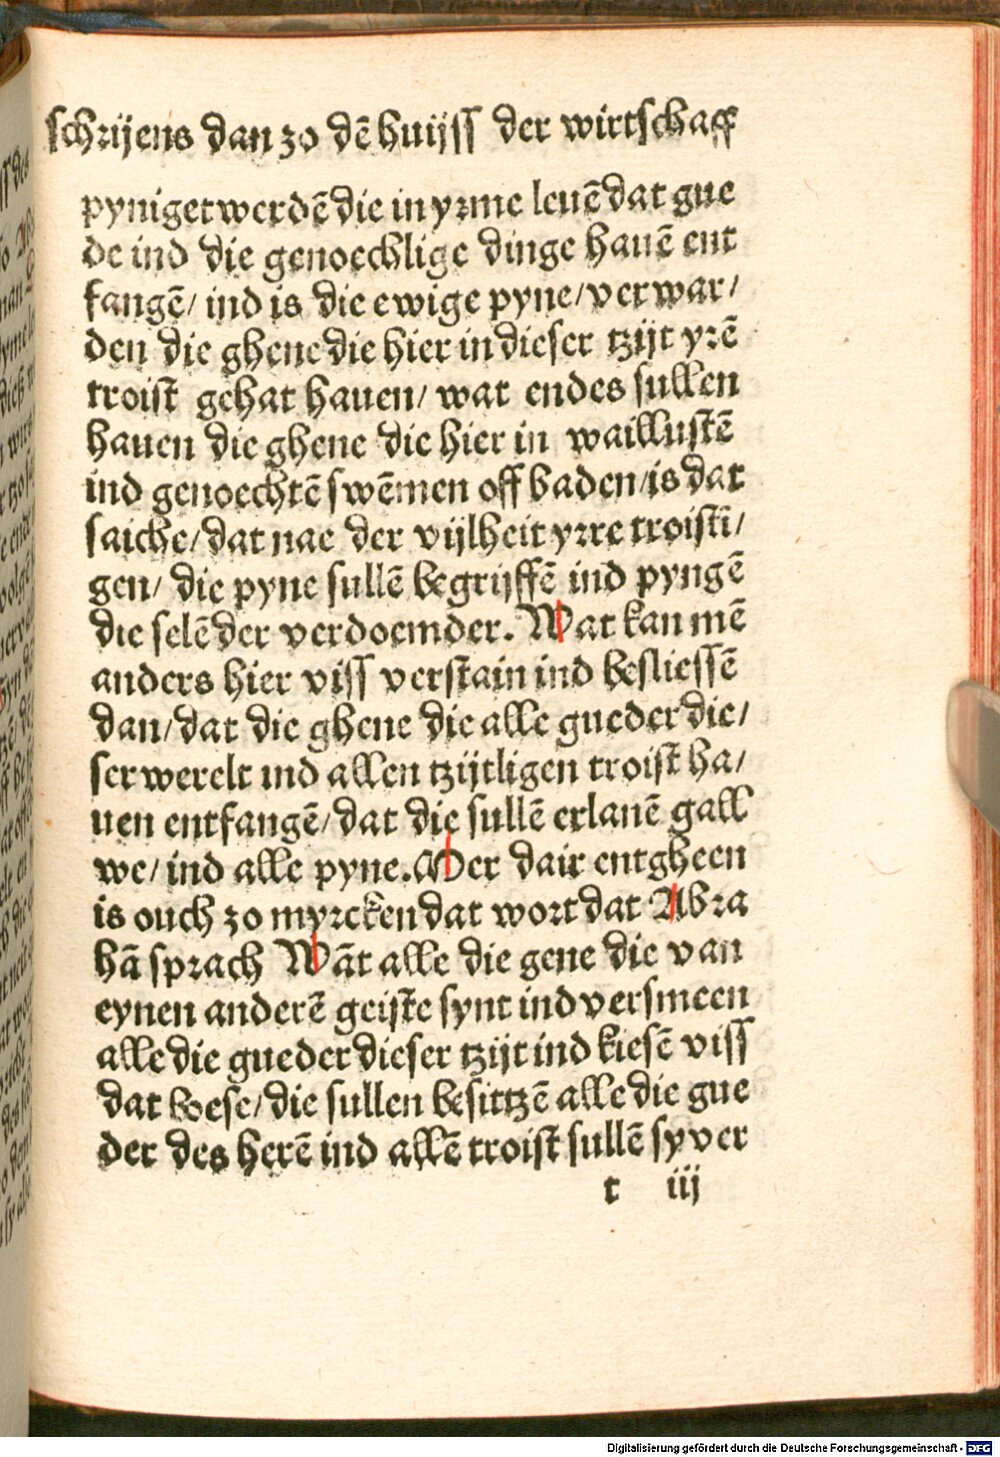 schrijens dan zo dē huijss der wirtschaff
pyniget werdē die in yrme leuē dat gue
de ind die genoechlige dinge hauē ent
fangē/ ind is die ewige pyne/verwar/
den die ghene die hier in dieser tzijt yrē
troist gehat hauen/ wat endes sullen
hauen die ghene die hier in waillustē
ind genoechtē swēmen off baden/is dat
saiche/dat nae der vijlheit yrre troisti/
gen/ die pyne sullē begrijffē ind pyngē
die selē der verdoemder. Wat kan mē
anders hier viss verstain ind besliessē
dan/dat die ghene die alle gueder die/
ser werelt ind allen tzijtligen troist ha/
uen entfangē/dat die sullē erlanē gall
we/ ind alle pyne. Mer dair entgheen
is ouch zo myrcken dat wort dat Abra
hā sprach Wāt alle die gene die van
eynen anderē geiste synt ind versmeen
alle die gueder dieser tzijt ind kiesē viss
dat boese/die sullen besittzē alle die gue
der des herē ind allē troist sullē sy ver
t iij
Digitalisierung gefördert durch die Deutsche Forschungsgemeinschaft - DFG